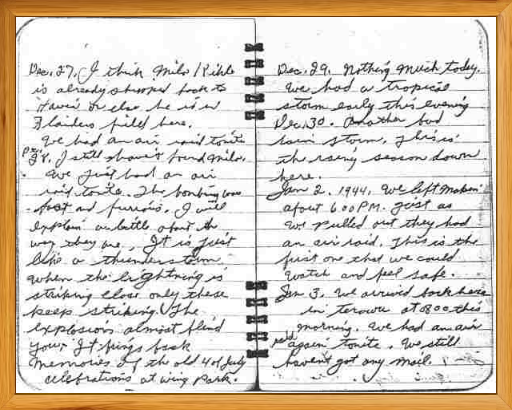 Dec. 27. I think Milo
is already shipped back to
Hawaii or else he is in
Flanders field here.
We had an air raid tonite
28. I still haven't found Milo.
We just had an air
raid tonite. The bombing was
fast and furious. I will
explain a little about the
way they are. It is just
like a thunderstorm
when the lightning is
striking close only these
keep striking. The
explosions almost blind
you. It brings back
memories of the old 4 of July
celebrations at wing Park.
Dec. 29. Nothing much today.
We had a tropical
storm early this evening
Dec. 30. Another bad
rain storm. This is
the rainy season down
here.
Jan 2. 1944. We left
about 6:00 P.M. just as
we pulled out they had
an air raid. This is the
first one that we could
watch and feel safe.
Jan 3. We arrived back here
in terowie at 0800 this
morning. We had an air
raid again tonite. We still
haven't got any mail.